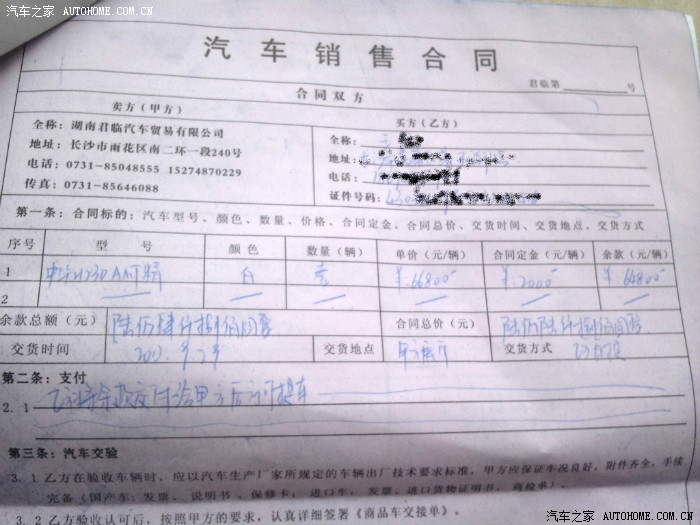 汽车之家 AUTOHOME.COM.CN
汽车销售合同
君临第 号
合同双方
卖方(甲方) 买方(乙方)
全称:湖南君临汽车贸易有限公司 全称:
地址:长沙市雨花区南二环一段240号 地址:
电话:0731-85048555 15274870229 电话:
传真:0731-85646088 证件号码:
第一条:合同标的:汽车型号、颜色、数量、价格、合同定金、合同总价、交货时间、交货地点、交货方式
序号 型号 颜色 数量(辆) 单价(元/辆) 合同定金(元/辆) 余款(元/辆)
1 中华H230 白 壹 ¥.66800 ¥.2000 ¥.64800
2
余款总额(元) 陆万肆仟捌佰圆整 合同总价(元) 陆万陆仟捌佰圆整
交货时间 交货地点 交货方式
第二条:支付
2.1 乙方将余款交付给甲方后方可提车
第三条:汽车交验
3.1乙方在验收车辆时,应以汽车生产厂家所规定的车辆出厂技术要求标准,甲方应保证车况良好,附件齐全,手续
完备(国产车:发票、说明书、保修卡;进口车,发票、进口货物证明书,商检单)。
3.2乙方验收认可后,按照甲方的要求,认真详细签署《商品车交接单》。
汽车之家 AUTOHOME.COM.CN